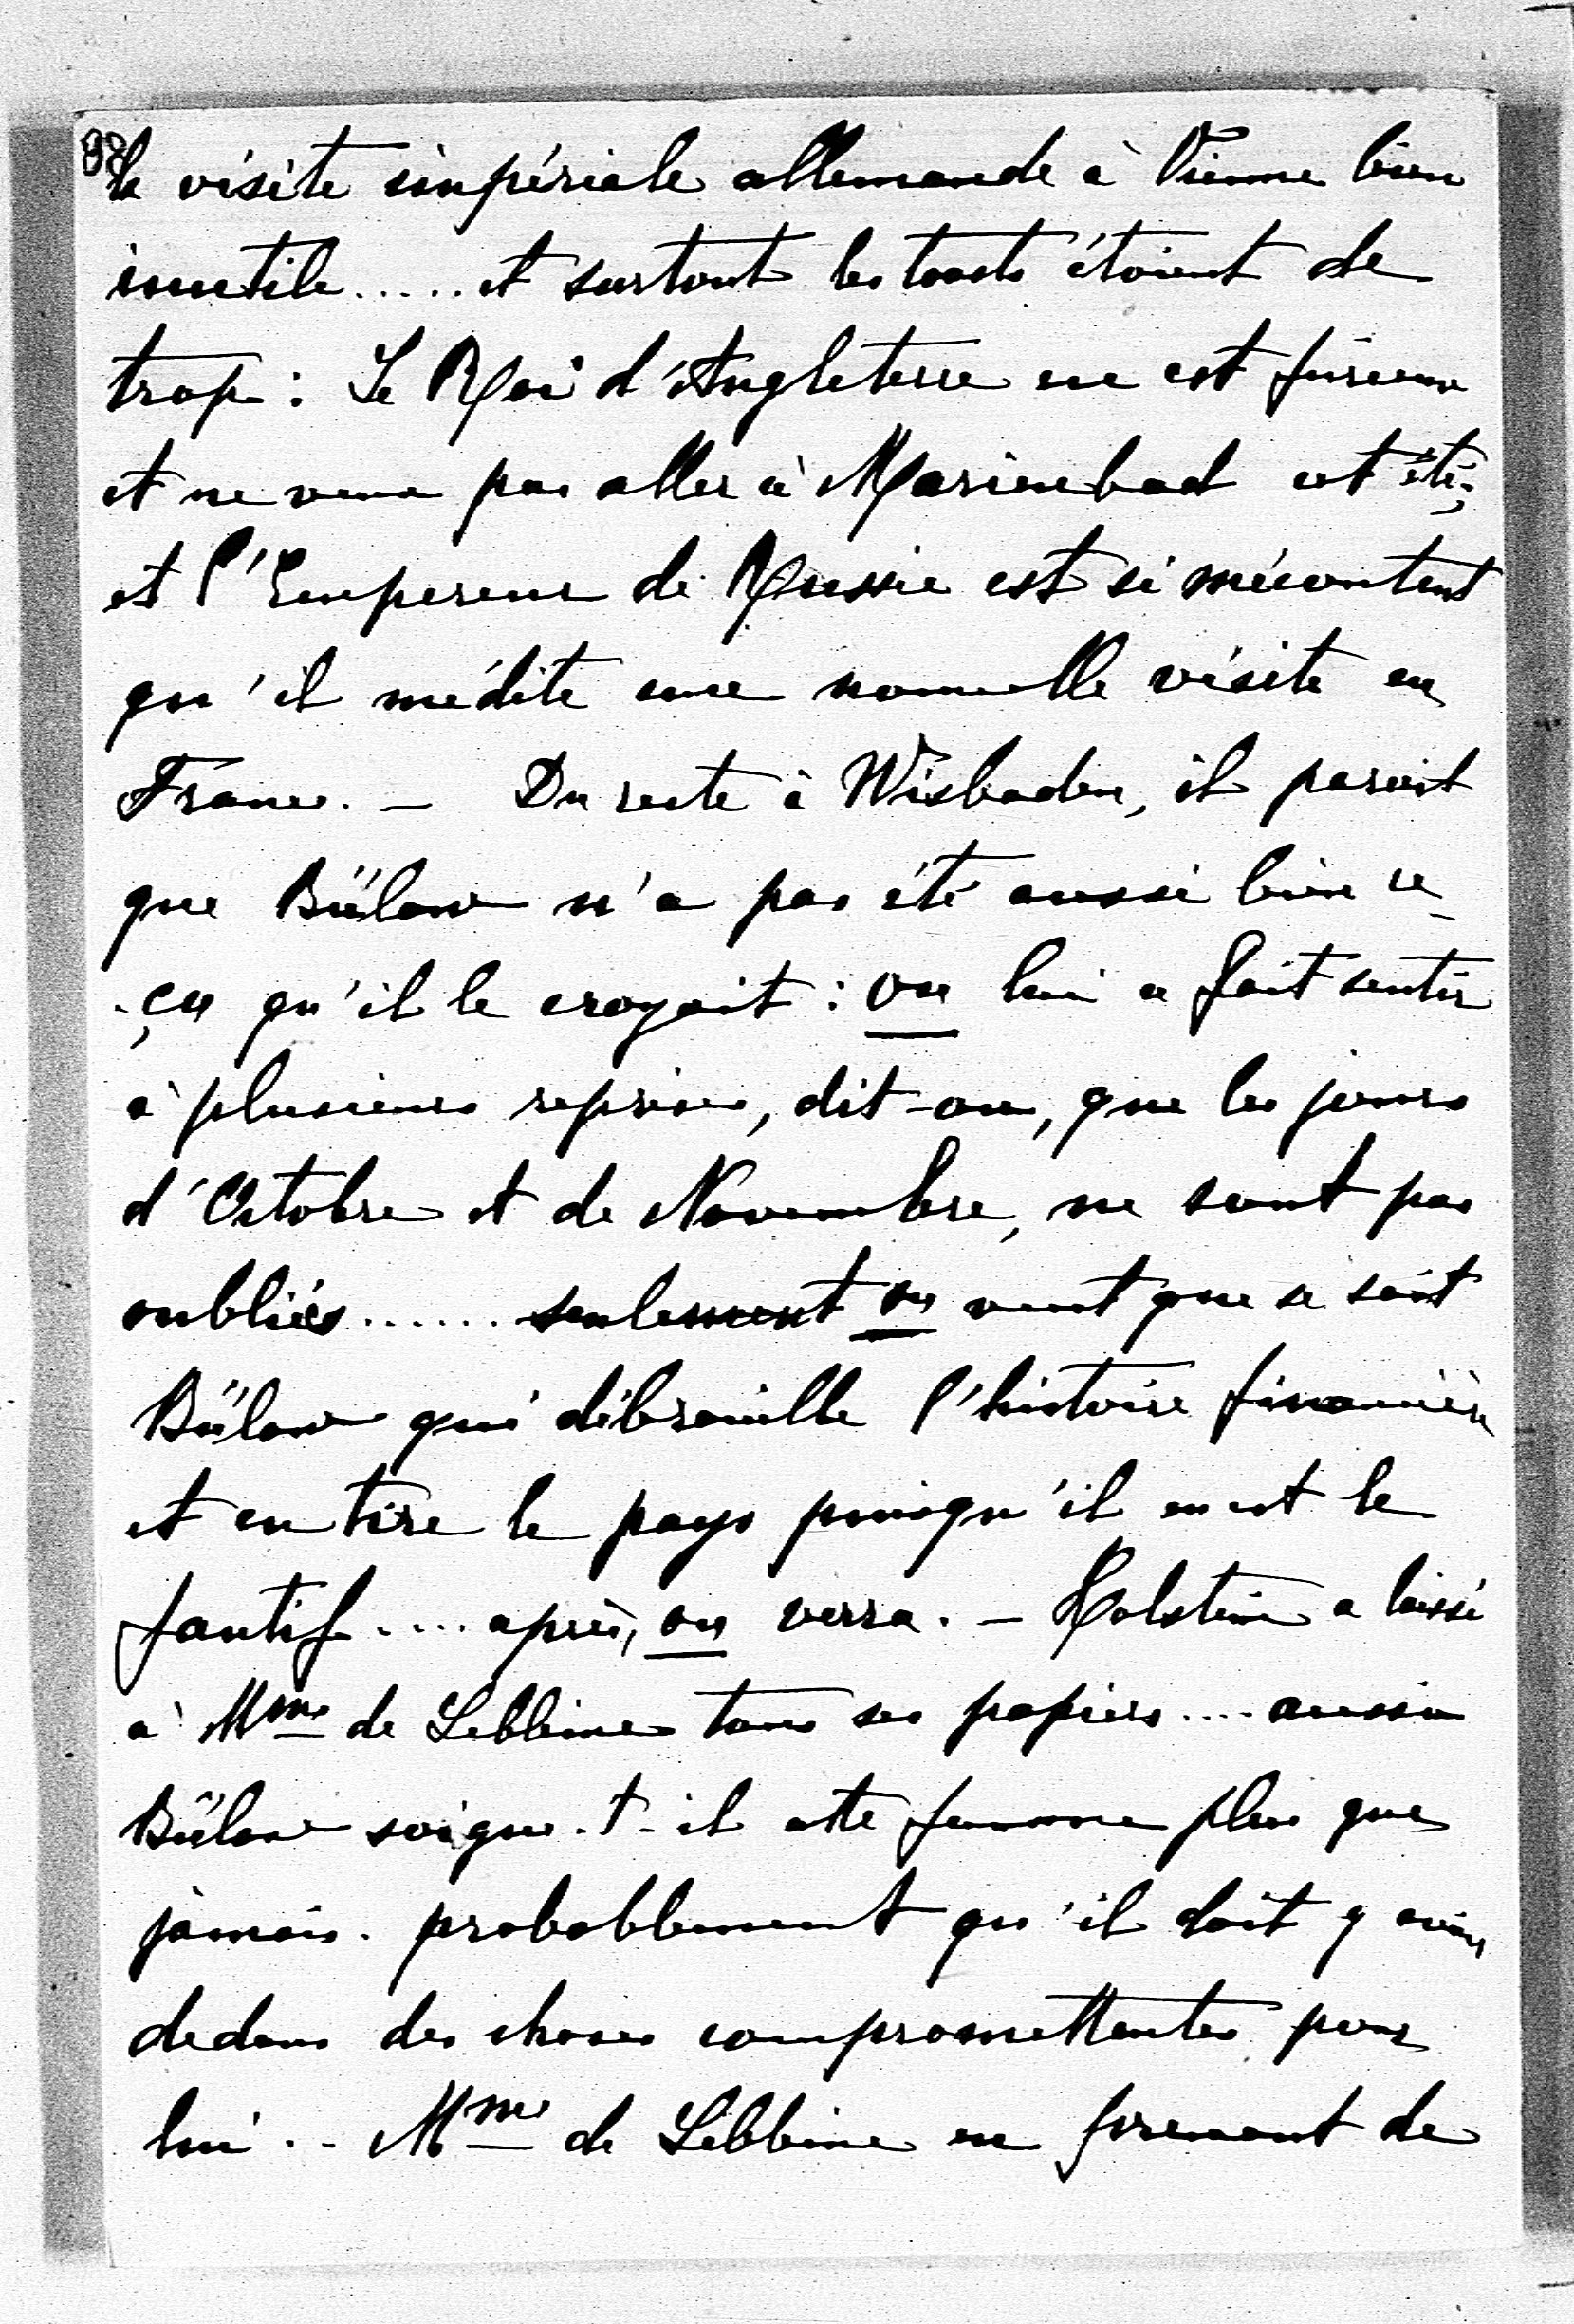 la visite impériale allemande à Vienne bien
inutile..... et surtout les toasts étaient de
trop : Le Roi d'Angleterre en est furieux
et ne veux pas aller à Marienbad cet été;
et l'Empereur de Russie est si mécontent
qu'il médite une nouvelle visite en
France. – Du reste à Wisbaden, il parait
que Bülow n'a pas été aussi bien re-
-çu qu'il le croyait : on lui a fait sentir
à plusieurs reprises, dit-on, que les jours
d'Octobre et de Novembre, ne sont pas
oubliés...... seulement on veut que ce soit
Bülow qui débrouille l'histoire financière
et en tire le pays puisqu'il en est le
fautif.... après, on verra. – Holstein a laissé
à Mme de Lebbine tous ses papiers.... aussi
Bülow soigne-t-il cette femme plus que
jamais. probablement qu'il doit y avoir
dedans des choses compromettantes pour
lui.. Mme de Lebbine en prenant de